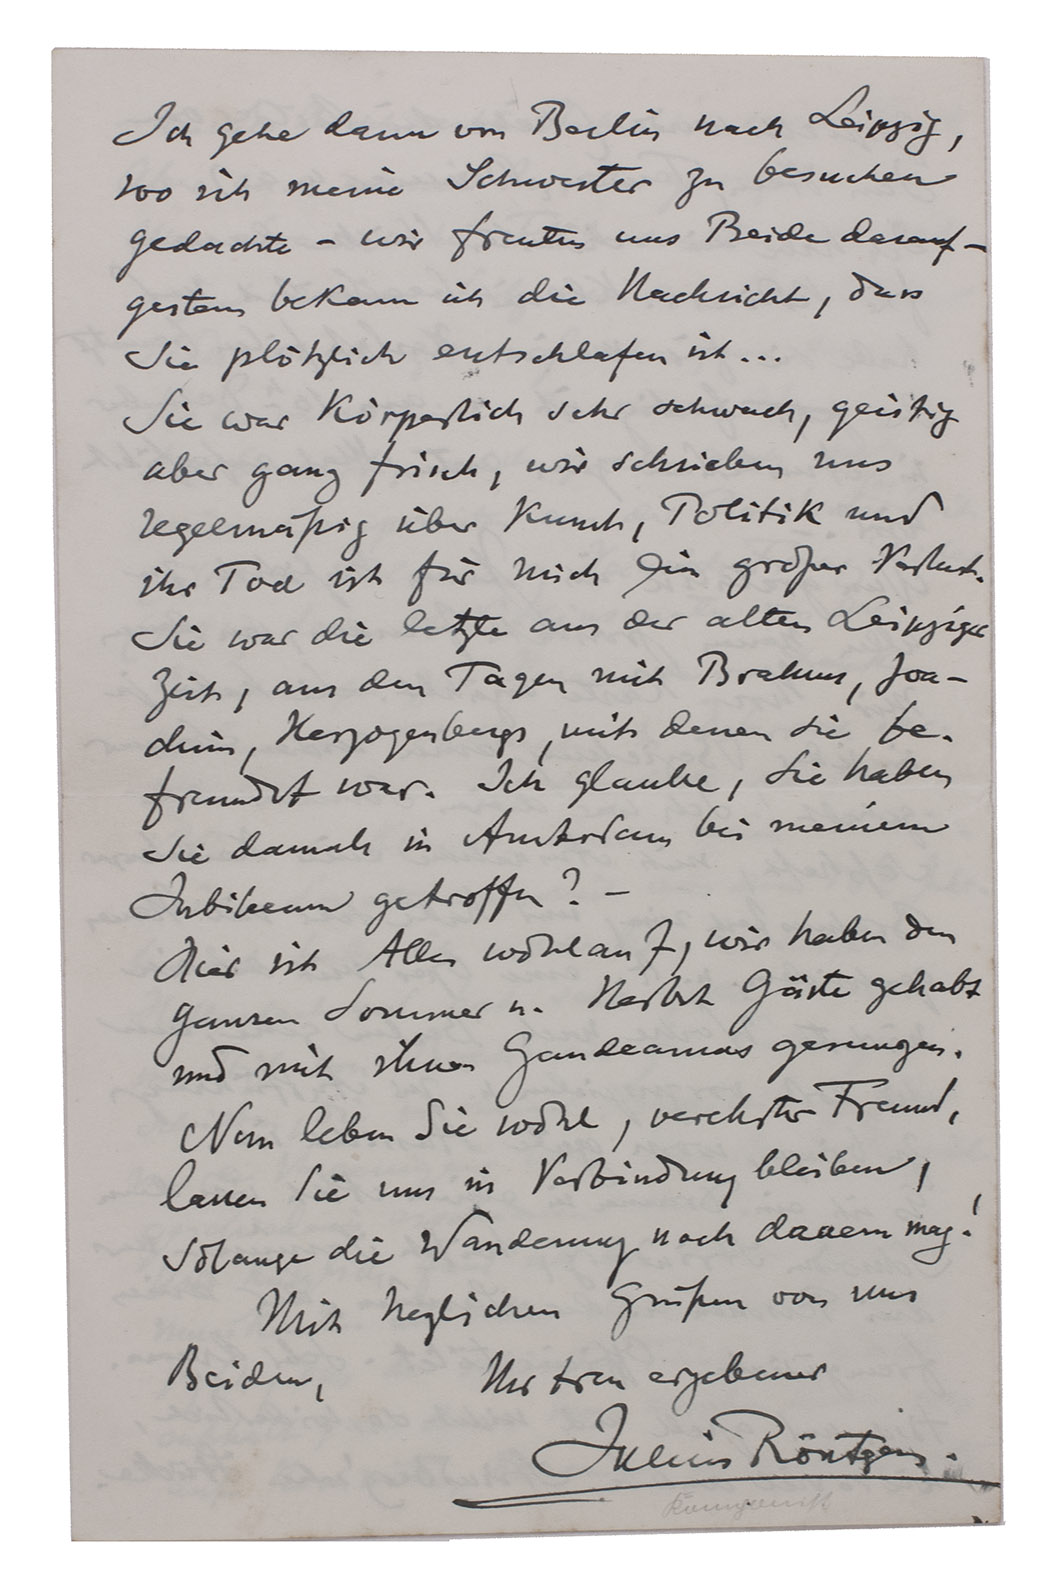 Ich gehe dann von Berlin nach Leipzig,
wo ich meine Schwester zu besuchen
gedachte – wir freuten uns Beide darauf –
gestern bekam ich die Nachricht, dass
Sie plötzlich entschlafen ist...
Sie war Körperlich sehr schwach, geistig
aber ganz frisch, wir schrieben uns
regelmäßig über Kunst, Politik und
ihr Tod ist für mich ein großer Verlust.
Sie war die letzte aus der alten Leipziger
Zeit, aus den Tagen mit Brahms, Joa-
chim, Herzogenbergs, mit denen sie be-
freundet war. Ich glaube, Sie haben
Sie damals in Amsterdam bei meinem
Jubileum getroffen? –
Hier ist Alles wohlauf, wir haben den
ganzen Sommer u. Herbst Gäste gehabt
und mit ihnen Gaudeamus gesungen.
Nun leben Sie wohl, verehrter Freund,
lassen Sie uns in Verbindung bleiben,
solange die Wanderung noch dauern mag!
Mit herzlichen Grüßen von uns
Beiden, Ihr treu ergebener
Julius Röntgen.
Komponist